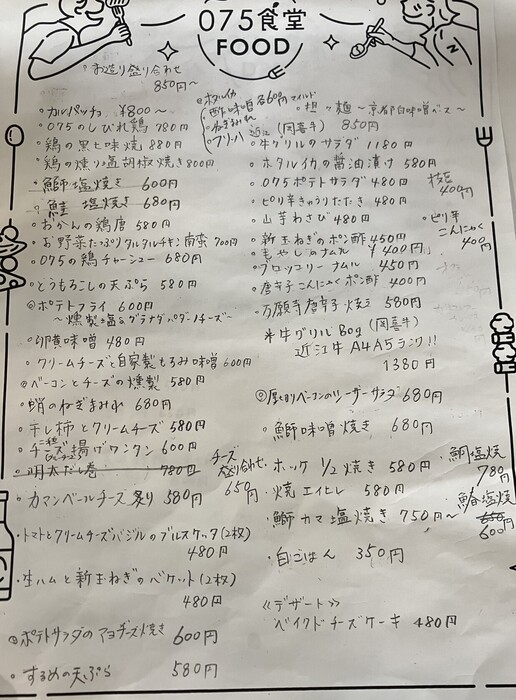 075食堂
FOOD
・お造り盛り合わせ
850円〜
・カルパッチョ ¥800〜
・075のしびれ鶏 780円
・鶏の黒七味焼 880円
・鶏の燻り 胡椒焼き 800円
・鰤塩焼き 600円
・鮭 塩焼き 680円
・おかんの鶏唐 580円
・お野菜たっぷりタルタルチキン南蛮 700円
・075の鶏チャーシュー 680円
・とうもろこしの天ぷら 580円
◎ポテトフライ 600円
〜燻製塩&グラナパダノチーズ〜
・卵黄味噌 480円
・クリームチーズと自家製もろみ味噌 600円
◎ベーコンとチーズの燻製 580円
・蛸のねぎまみれ 680円
・干し柿とクリームチーズ 580円
・チーズ揚げワンタン 600円
・明太だし巻 780円
チーズ
盛り合わせ
650円
・カマンベールチーズ炙り 580円
・トマトとクリームチーズバジルのブルスケッタ(2枚)
480円
・生ハムと新玉ねぎのバケット(2枚)
480円
◎ポテトサラダのアヨチーズ焼き 600円
・するめの天ぷら 580円
・ホタルイカ
・酢味噌 各600円
・ねぎまみれ
マイルド
・担々麺〜京都白味噌ベース〜
850円
近江(岡喜牛)
・牛グリルのサラダ 1180円
・ホタルイカの醤油漬け 580円
・075ポテトサラダ 480円
枝豆
400円
・ピリ辛きゅうりたたき 480円
・山芋わさび 480円
・ピリ辛
こんにゃく
400円
・新玉ねぎのポン酢 450円
・もやしのナムル ¥400円
・ブロッコリーナムル 450円
・唐辛子こんにゃくポン酢 400円
・万願寺唐辛子焼き 580円
※牛グリル80g (岡喜牛)
近江牛A4A5ランク!!
1380円
◎厚切りベーコンのシーザーサラダ 680円
・鰤味噌焼き 680円
・ホッケ 1/2焼き 580円
・鯛塩焼
780円
・焼エイヒレ 580円
・鰤カマ塩焼き 750円〜
塩焼
600円
・白ごはん 350円
《デザート》
ベイクドチーズケーキ 480円